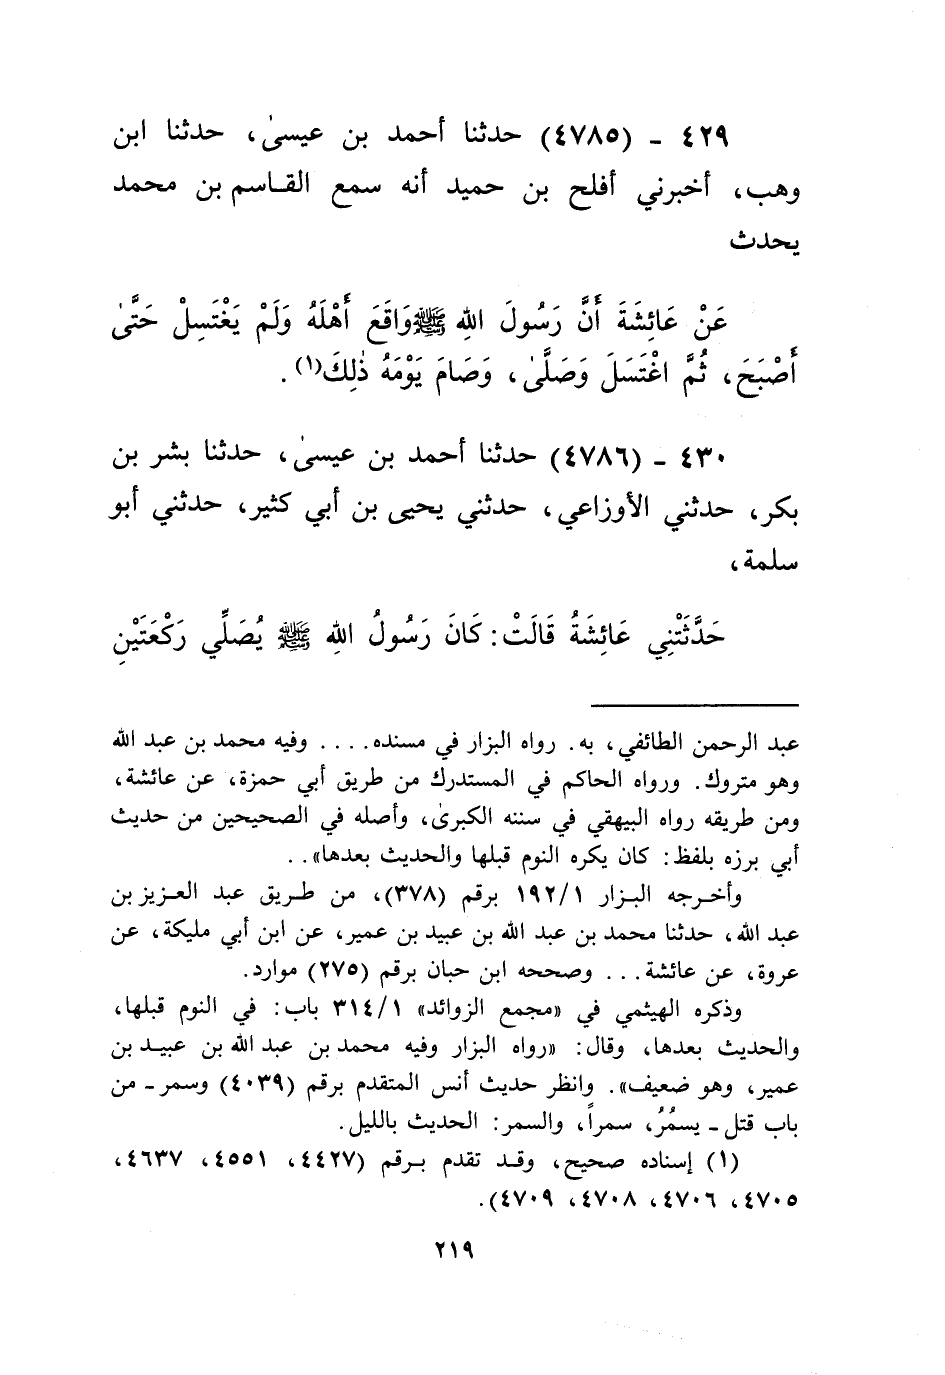 ٤٢٩ ـ (٤٧٨٥) حدثنا أحمد بن عيسىٰ، حدثنا ابن
وهب، أخبرني أفلح بن حميد أنه سمع القاسم بن محمد
يحدث
عَنْ عَائِشَةَ أَنَّ رَسُولَ اللهِ ﷺ وَاقَعَ أَهْلَهُ وَلَمْ يَغْتَسِلْ حَتَّىٰ
أَصْبَحَ، ثُمَّ اغْتَسَلَ وَصَلَّىٰ، وَصَامَ يَوْمَهُ ذٰلِكَ(١).
٤٣٠ ـ (٤٧٨٦) حدثنا أحمد بن عيسىٰ، حدثنا بشر بن
بكر، حدثني الأوزاعي، حدثني يحيى بن أبي كثير، حدثني أبو
سلمة،
حَدَّثَتْنِي عَائِشَةُ قَالَتْ: كَانَ رَسُولُ اللهِ ﷺ يُصَلِّي رَكْعَتَيْنِ
عبد الرحمن الطائفي، به. رواه البزار في مسنده.... وفيه محمد بن عبد الله
وهو متروك. ورواه الحاكم في المستدرك من طريق أبي حمزة، عن عائشة،
ومن طريقه رواه البيهقي في سننه الكبرىٰ، وأصله في الصحيحين من حديث
أبي برزه بلفظ: كان يكره النوم قبلها والحديث بعدها»..
وأخرجه البزار ١٩٢/١ برقم (٣٧٨)، من طريق عبد العزيز بن
عبد الله، حدثنا محمد بن عبد الله بن عبيد بن عمير، عن ابن أبي مليكة، عن
عروة، عن عائشة... وصححه ابن حبان برقم (٢٧٥) موارد.
وذكره الهيثمي في «مجمع الزوائد» ٣١٤/١ باب: في النوم قبلها،
والحديث بعدها، وقال: «رواه البزار وفيه محمد بن عبد الله بن عبيد بن
عمير، وهو ضعيف». وانظر حديث أنس المتقدم برقم (٤٠٣٩) وسمر ـ من
باب قتل ـ يسمُرُ، سمراً، والسمر: الحديث بالليل.
(١) إسناده صحيح، وقد تقدم برقم (٤٤٢٧، ٤٥٥١، ٤٦٣٧،
٤٧٠٥، ٤٧٠٦، ٤٧٠٨، ٤٧٠٩).
٢١٩